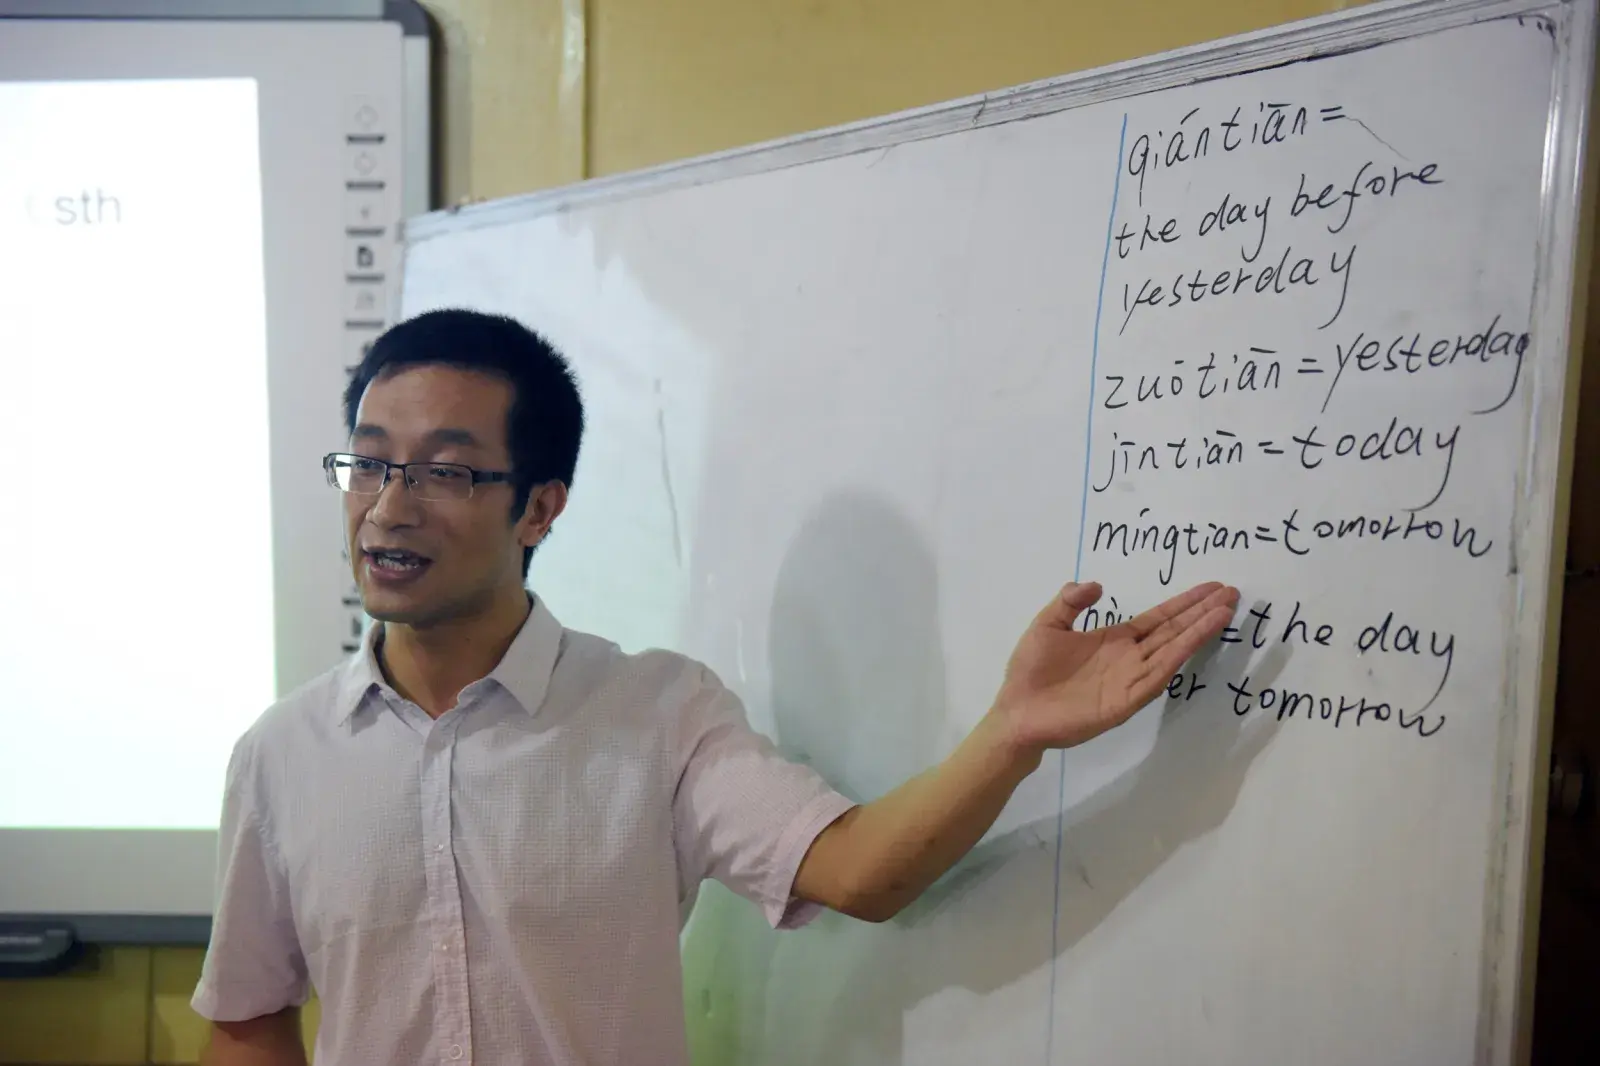 sth
qiántiān =
the day before
yesterday
zuōtiān = yesterday
jīntiān = today
míngtian = tomorrow
= the day
er tomorrow